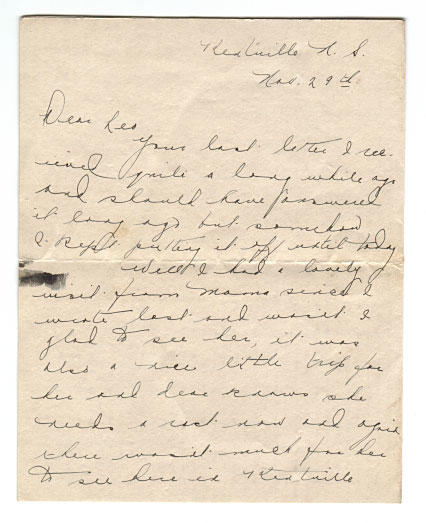 Kentville N. S.
Nov. 29th
Dear Leo
Your last letter I rec-
ieved quite a long while ago
and should have answered
it long ago but somehow
I kept putting it off until today
Well I had a lovely
visit from Mama since I
wrote last and wasn't I
glad to see her, it was
also a nice little trip for
her and dear knows she
needs a rest now and again
there wasn't much for her
to see here in Kentville